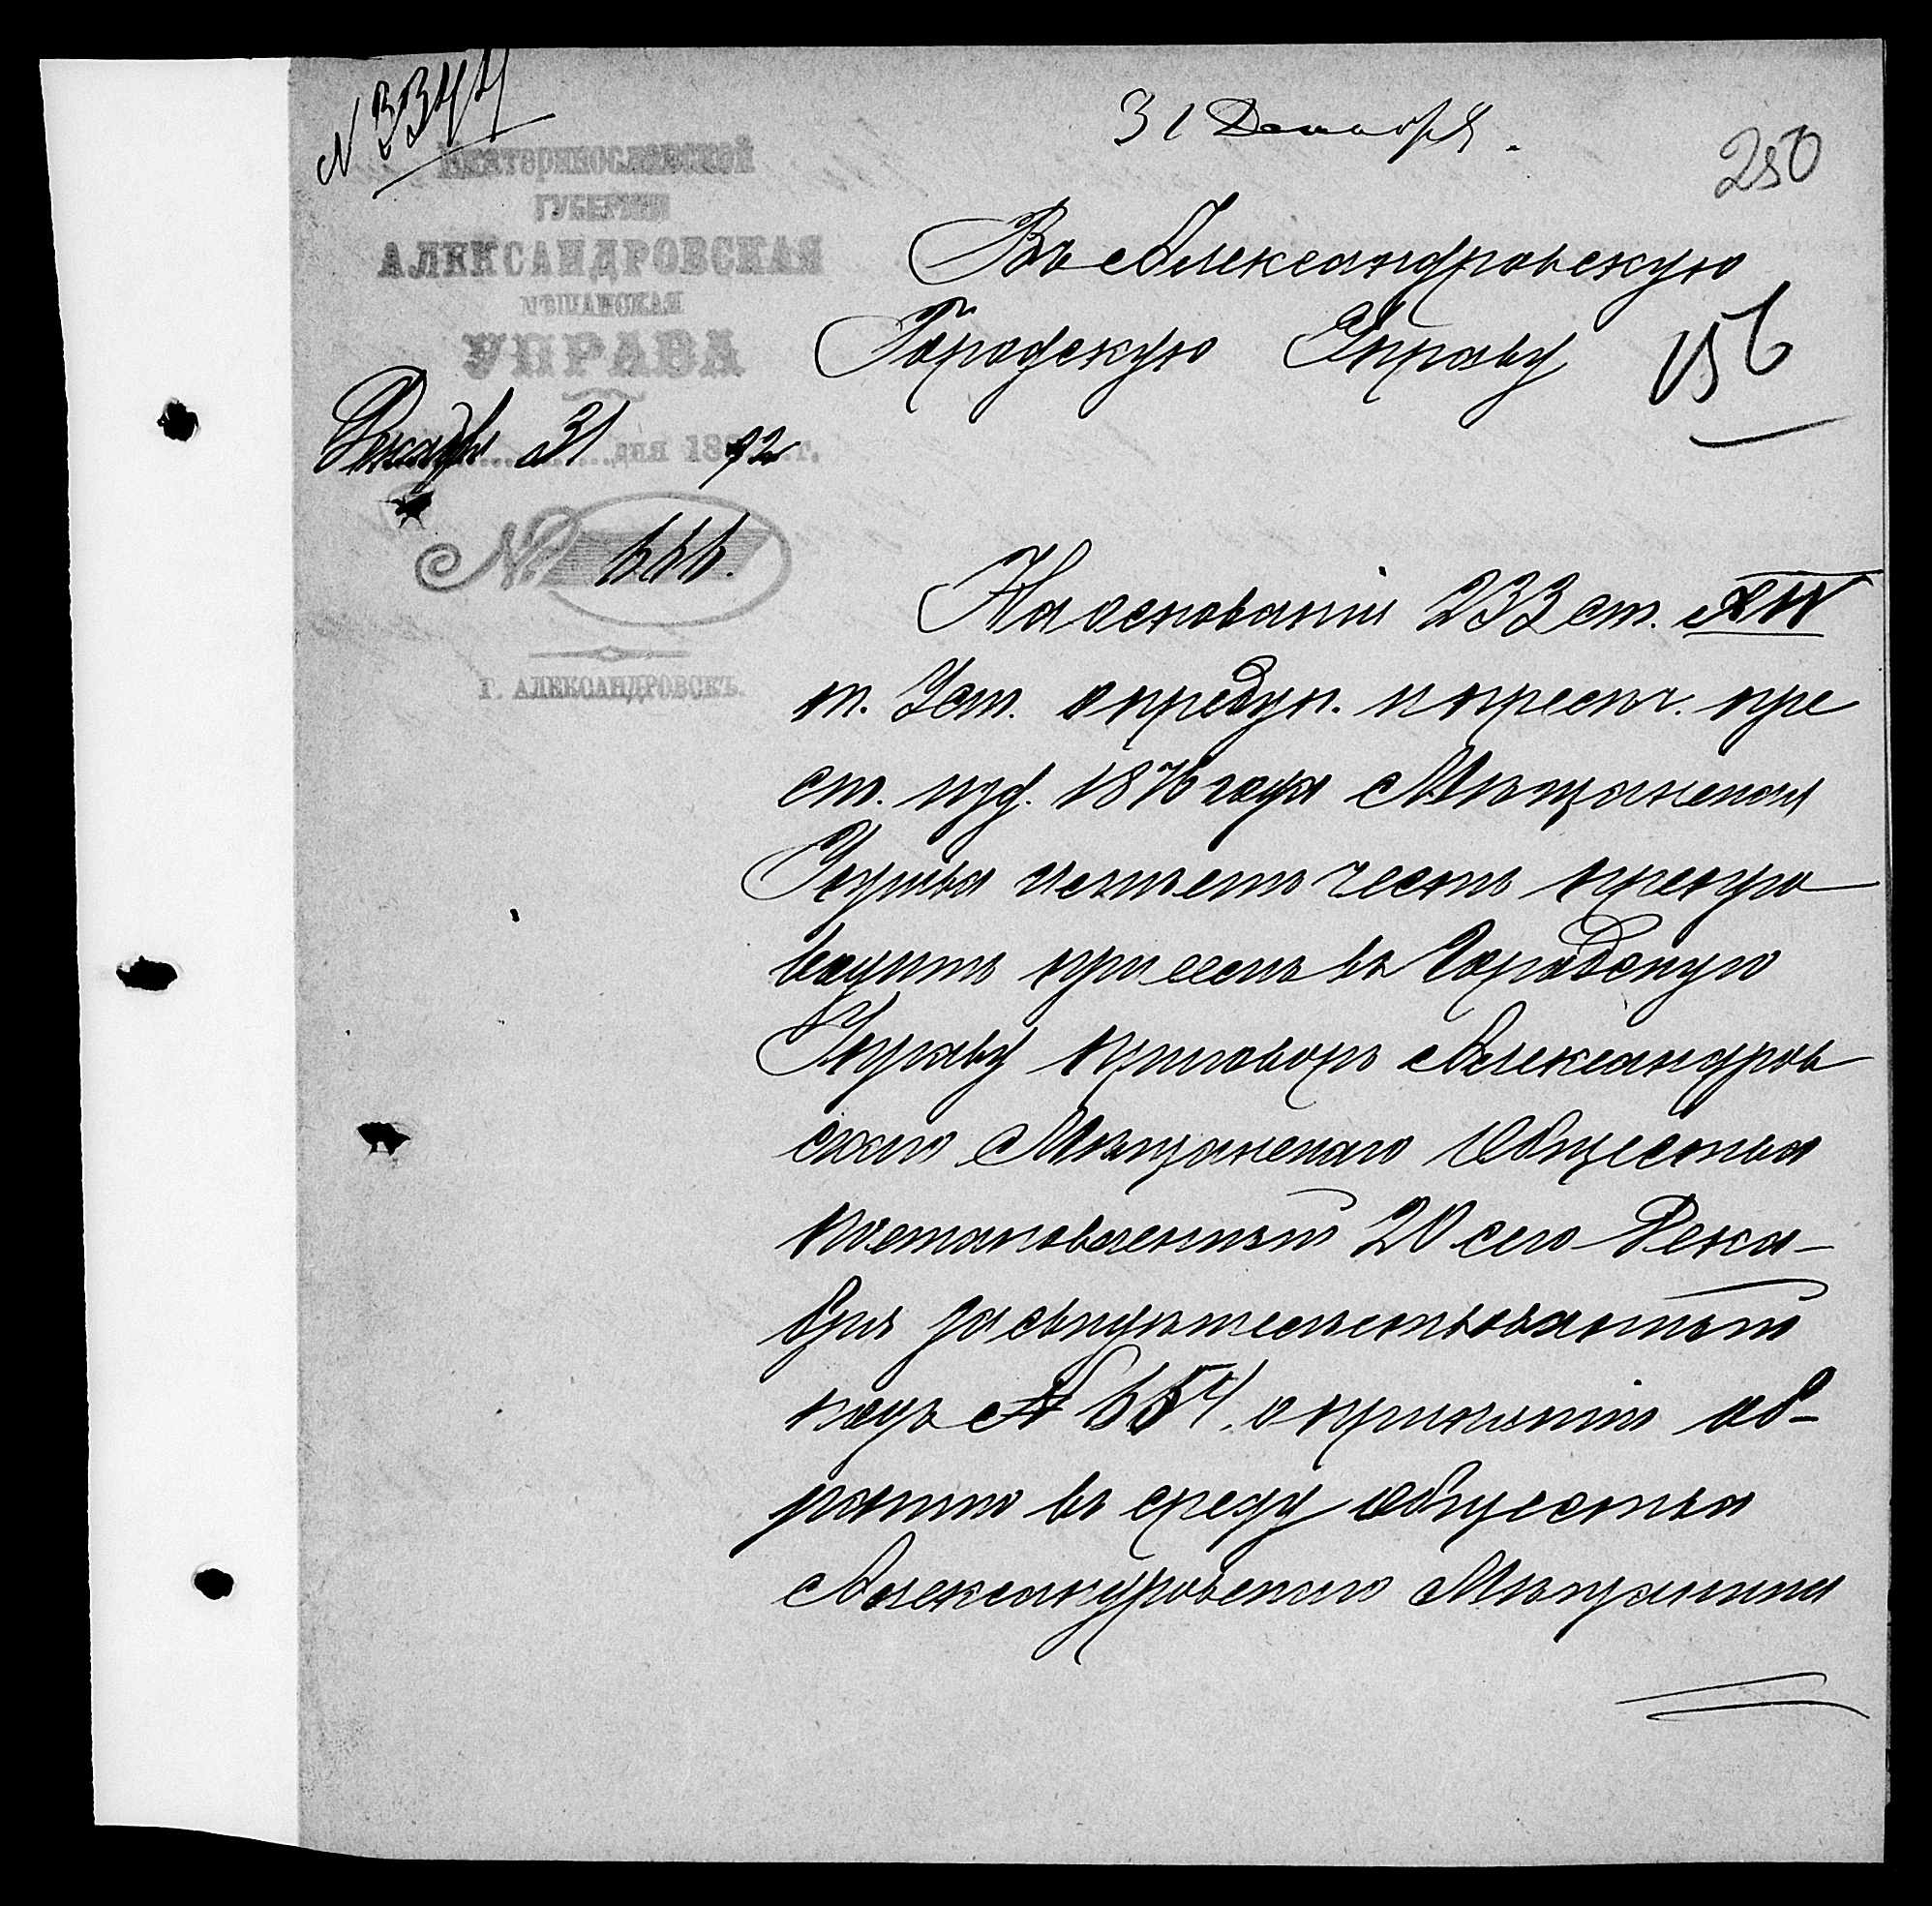 N 3344
31 Декабря.
250
Екатеринославской
ГУБЕРНІИ
АЛЕКСАНДРОВСКАЯ
МѢЩАНСКАЯ
УПРАВА
Декабря 31 дня 1892 г.
№ 666.
Г. АЛЕКСАНДРОВСКЪ.
Въ Александровскую
Городскую Управу
156
На основаніи 233 ст. XIV
т. Уст. о предуп. и пресѣч. пре
ст. изд. 1876 года Мѣщанская
Управа имѣетъ честь препро
водить при семъ въ Городскую
Управу приговоръ Александров
скаго Мѣщанскаго Общества
постановленный 20 сего Дека-
бря засвидѣтельствованный
подъ № 654. о принятіи об-
ратно въ среду общества
Александровскаго Мѣщанина